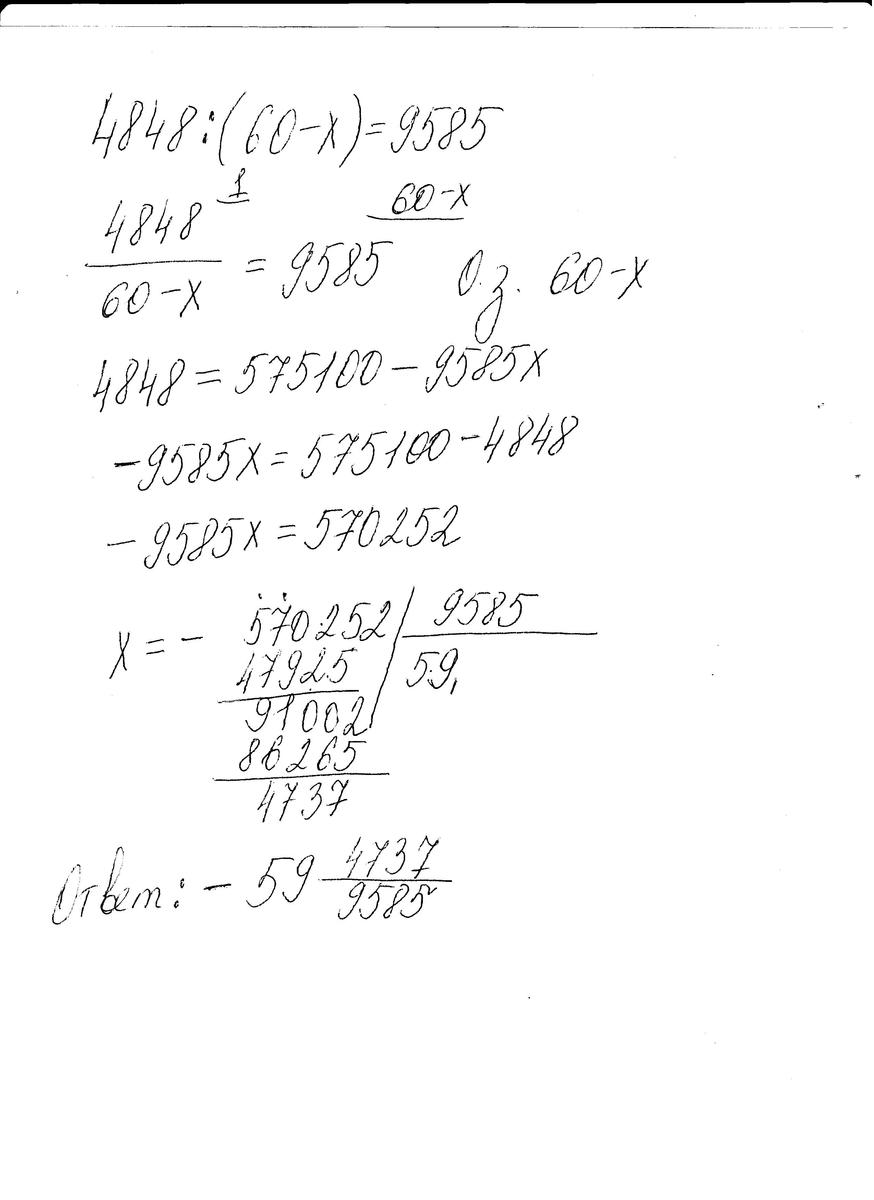 4848:(60-x)=9585
4848 1 / 60-x = 9585 60-x О.з. 60-x
4848=575100-9585x
-9585x=575100-4848
-9585x=570252
x=- 570252 9585
47925 59,
91002
86265
4737
Ответ: -59 4737/9585